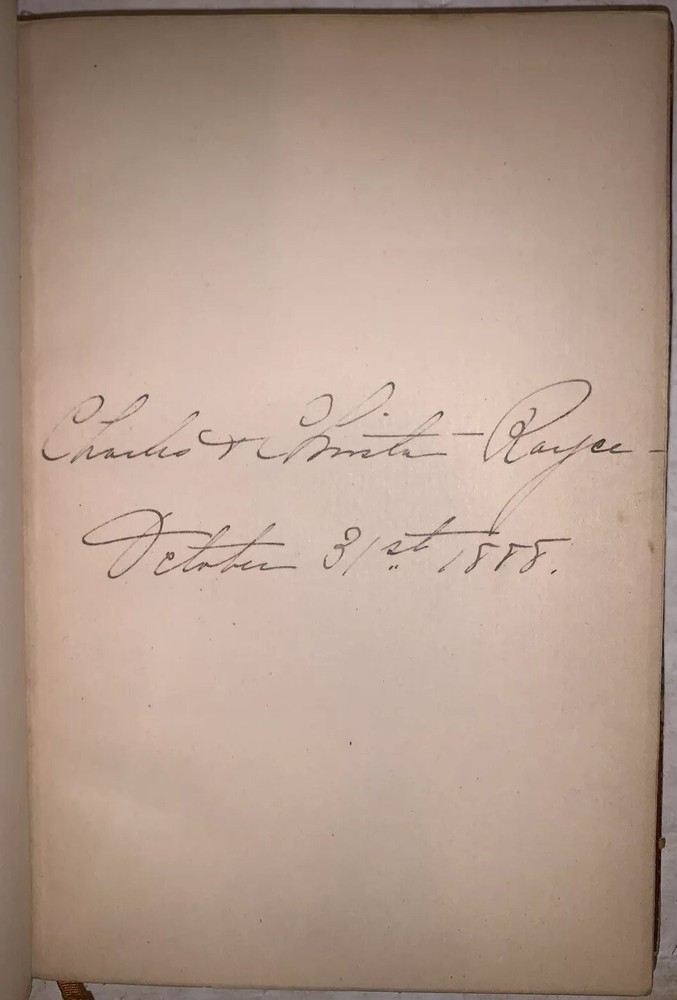 Charles & Christa - Royce -
October 31st 1888.